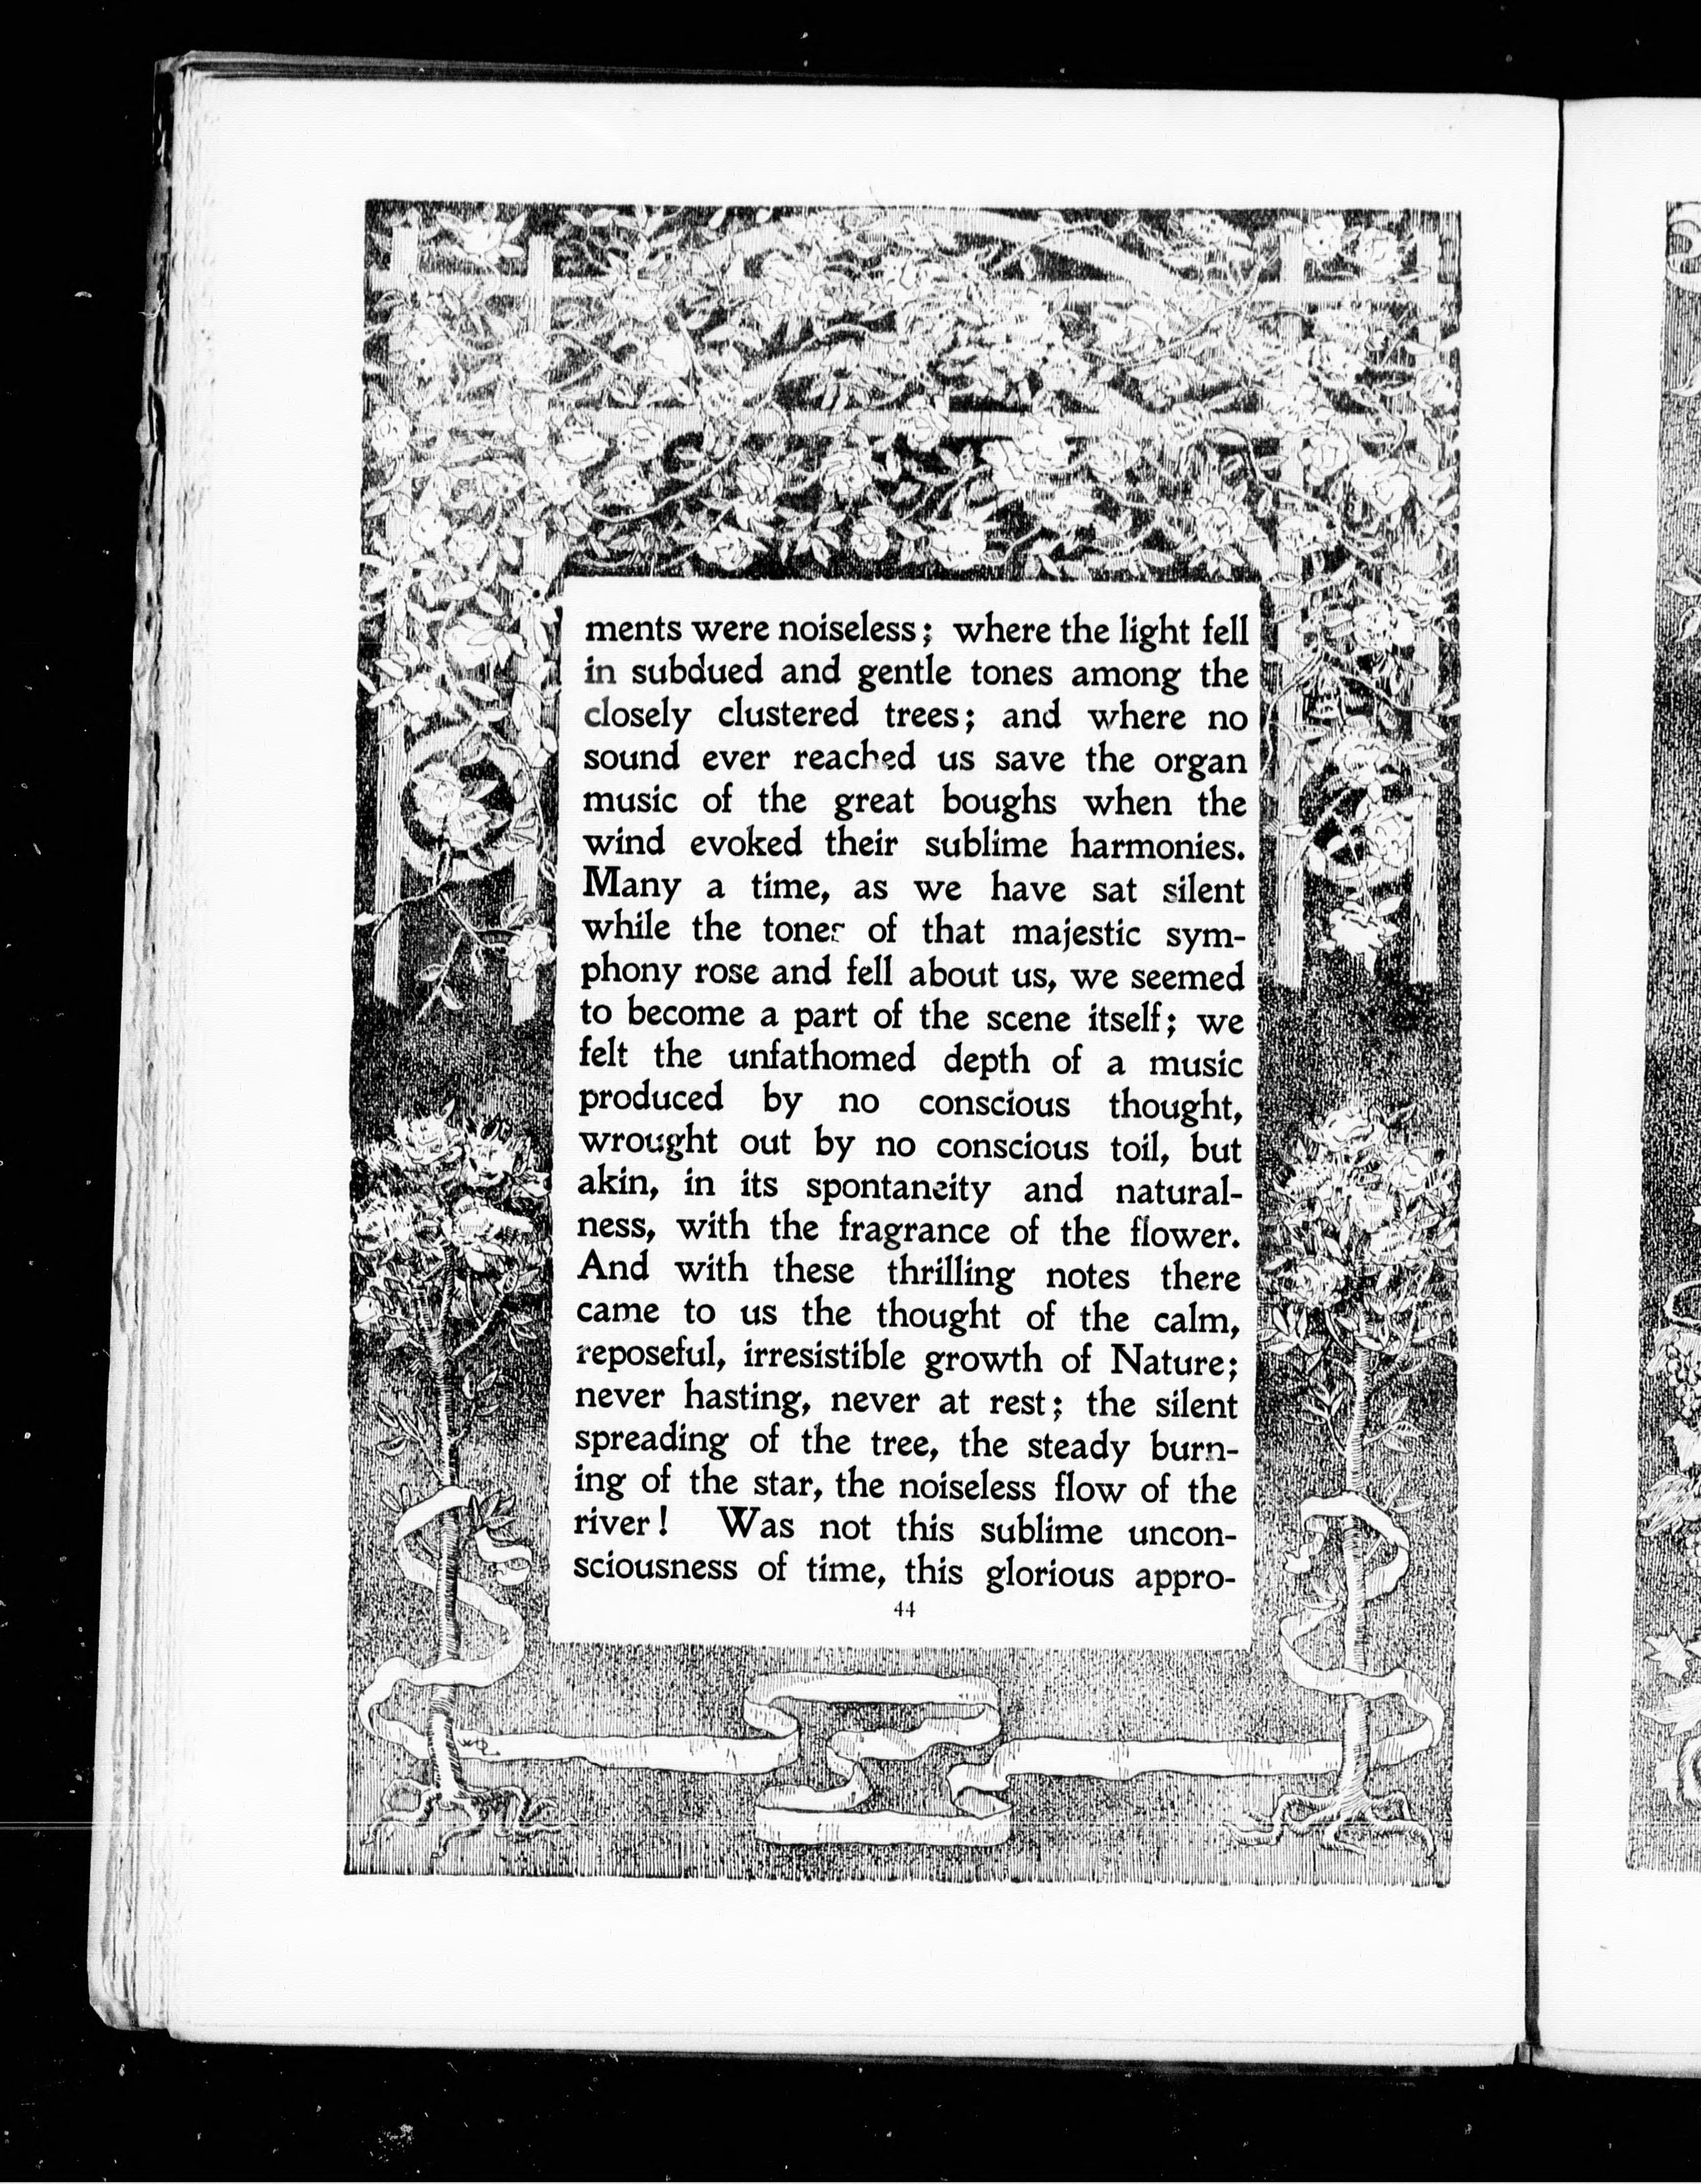 ments were noiseless; where the light fell
in subdued and gentle tones among the
closely clustered trees; and where no
sound ever reached us save the organ
music of the great boughs when the
wind evoked their sublime harmonies.
Many a time, as we have sat silent
while the tones of that majestic sym-
phony rose and fell about us, we seemed
to become a part of the scene itself; we
felt the unfathomed depth of a music
produced by no conscious thought,
wrought out by no conscious toil, but
akin, in its spontaneity and natural-
ness, with the fragrance of the flower.
And with these thrilling notes there
came to us the thought of the calm,
reposeful, irresistible growth of Nature;
never hasting, never at rest; the silent
spreading of the tree, the steady burn-
ing of the star, the noiseless flow of the
river! Was not this sublime uncon-
sciousness of time, this glorious appro-
44